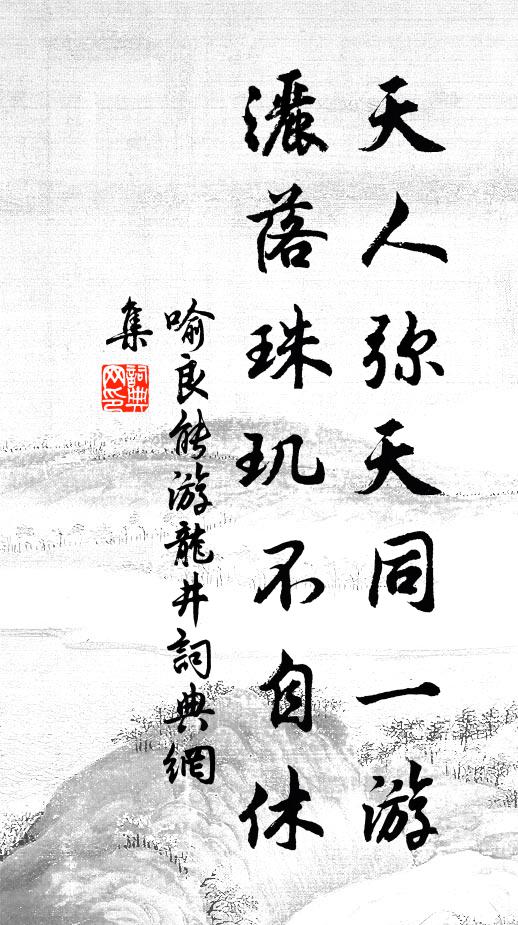 天人弥天同一游
灑落珠玑不自休
喻良能游龍井詞典網
集
詞典
网印